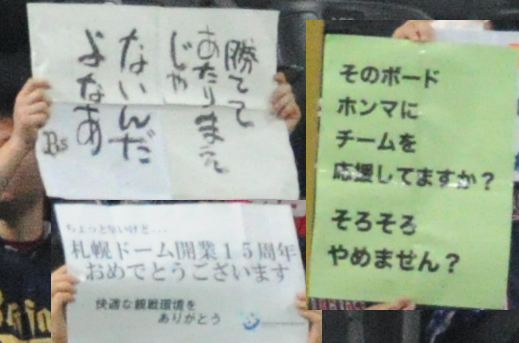 勝てて
あたりまえ
じゃ
ないんだ
よなあ
Bs
ちょっと早いけど...
札幌ドーム開業15周年
おめでとうございます
快適な観戦環境を
ありがとう
そのボード
ホンマに
チームを
応援してますか?
そろそろ
やめません?